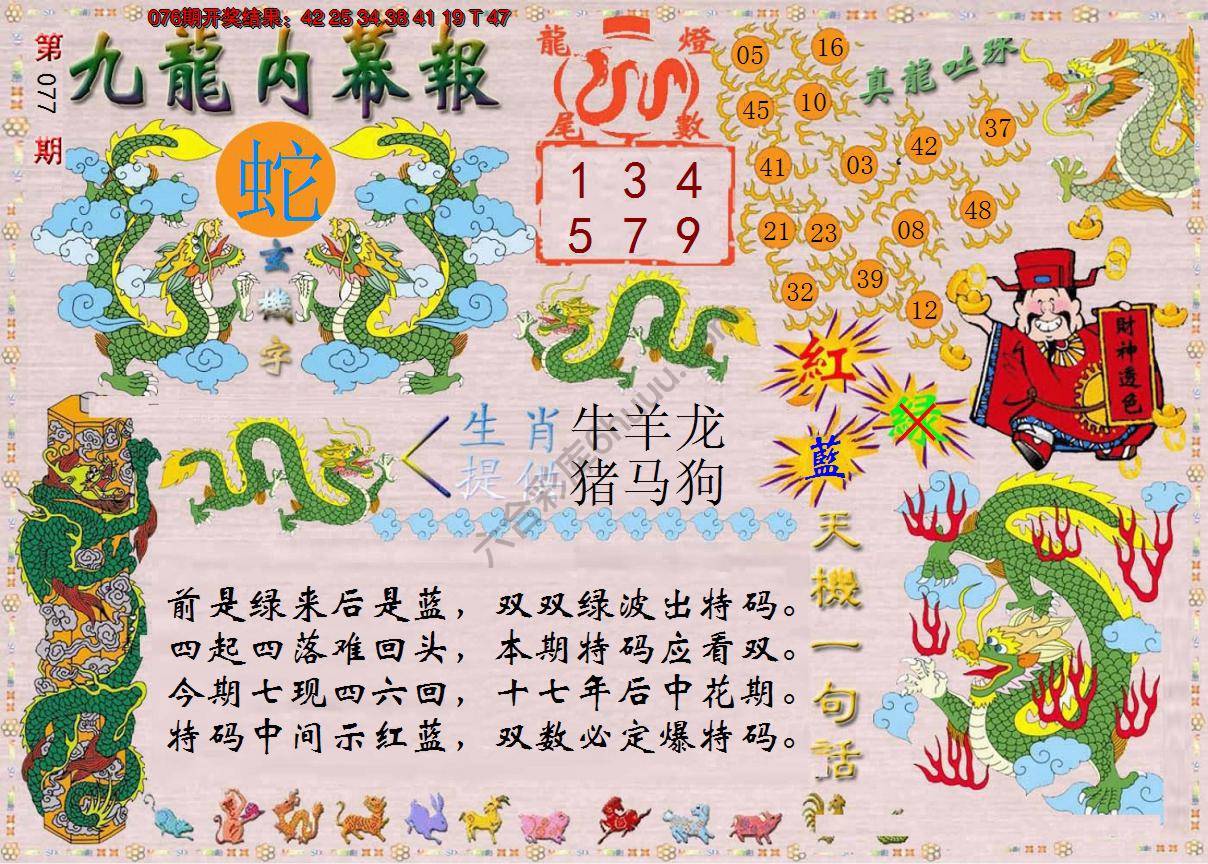 076期开奖结果：42 25 34 38 41 19 T 47
第077期
九龍内幕報
蛇
玄機字
龍燈
尾數
1 3 4
5 7 9
真龍吐珠
05 16
45 10
41 03 42 37
21 23 08 48
32 39 12
紅
绿
藍
財神透色
生肖 牛羊龙
提供 猪马狗
六合彩库
前是绿来后是蓝，双双绿波出特码。
四起四落难回头，本期特码应看双。
今期七现四六回，十七年后中花期。
特码中间示红蓝，双数必定爆特码。
天機一句話